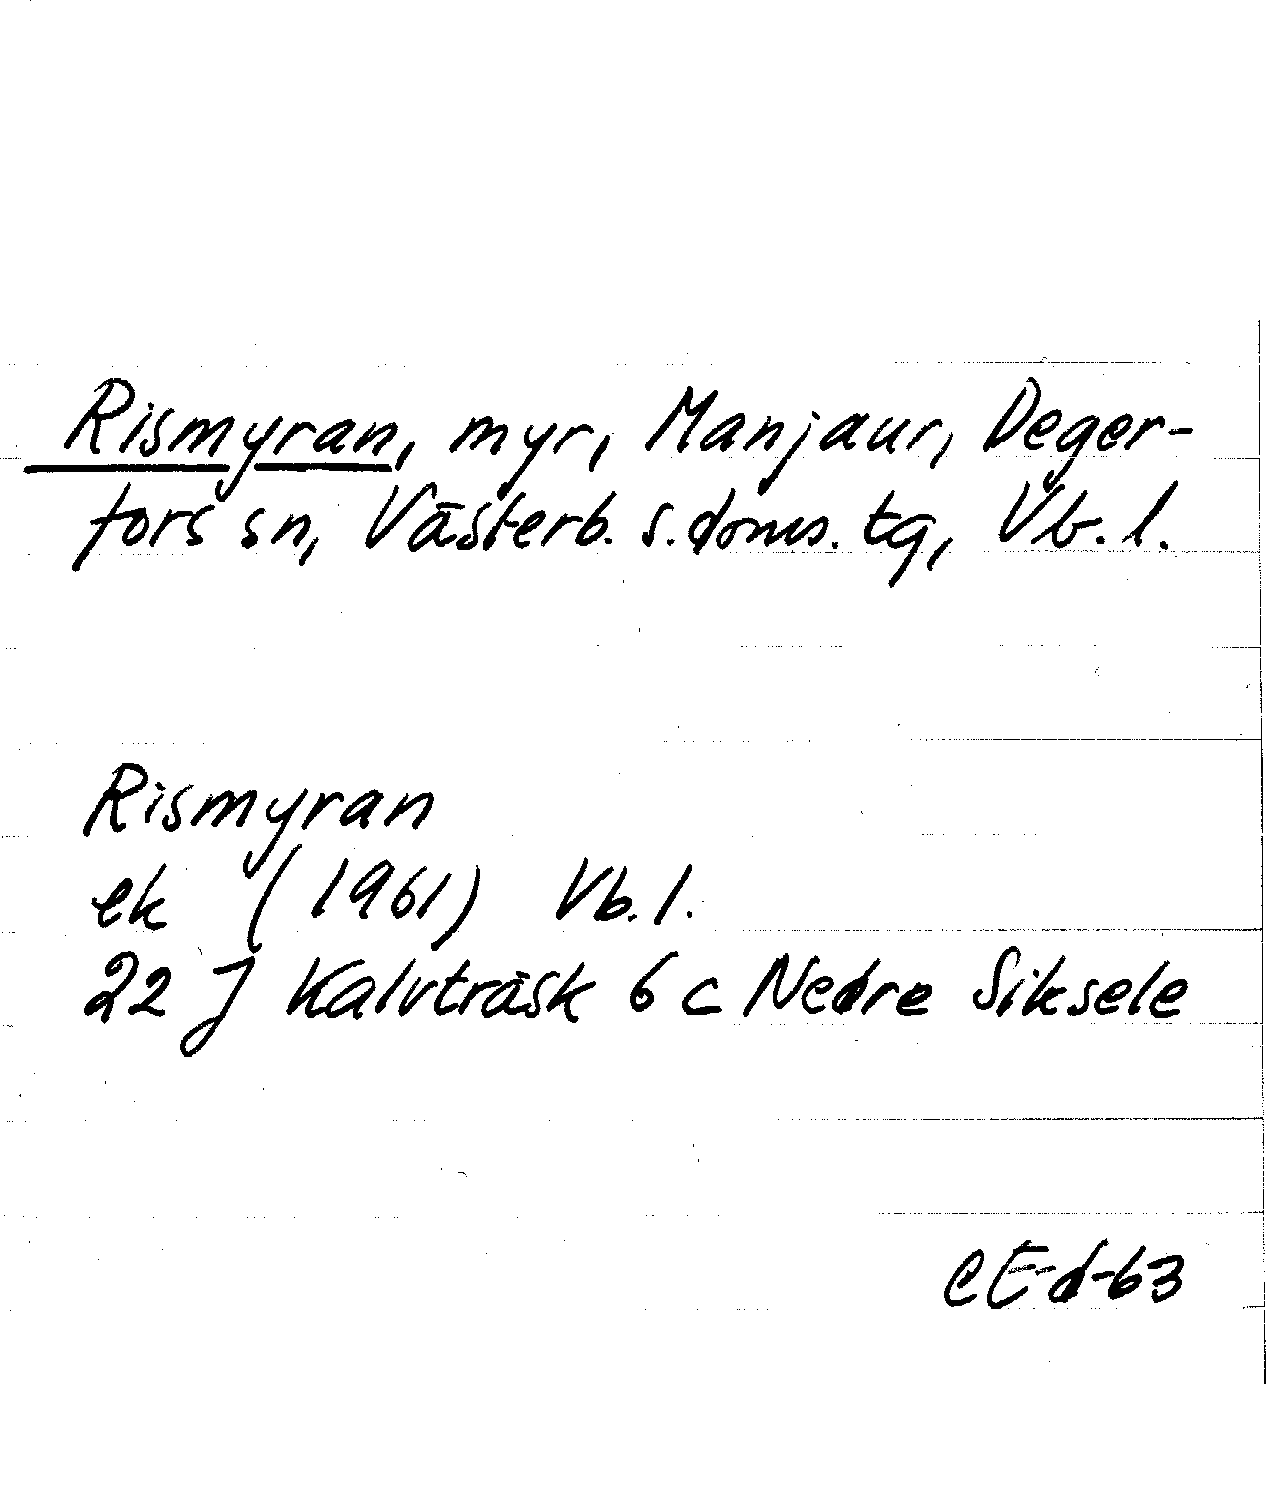 Rismyran, myr, Manjaur, Deger-
fors sn, Västerb. s. doms. tg, Vb. l.
Rismyran
ek (1961) Vb. l.
22 J Kalvträsk 6 c Nedre Siksele
CE-d-63